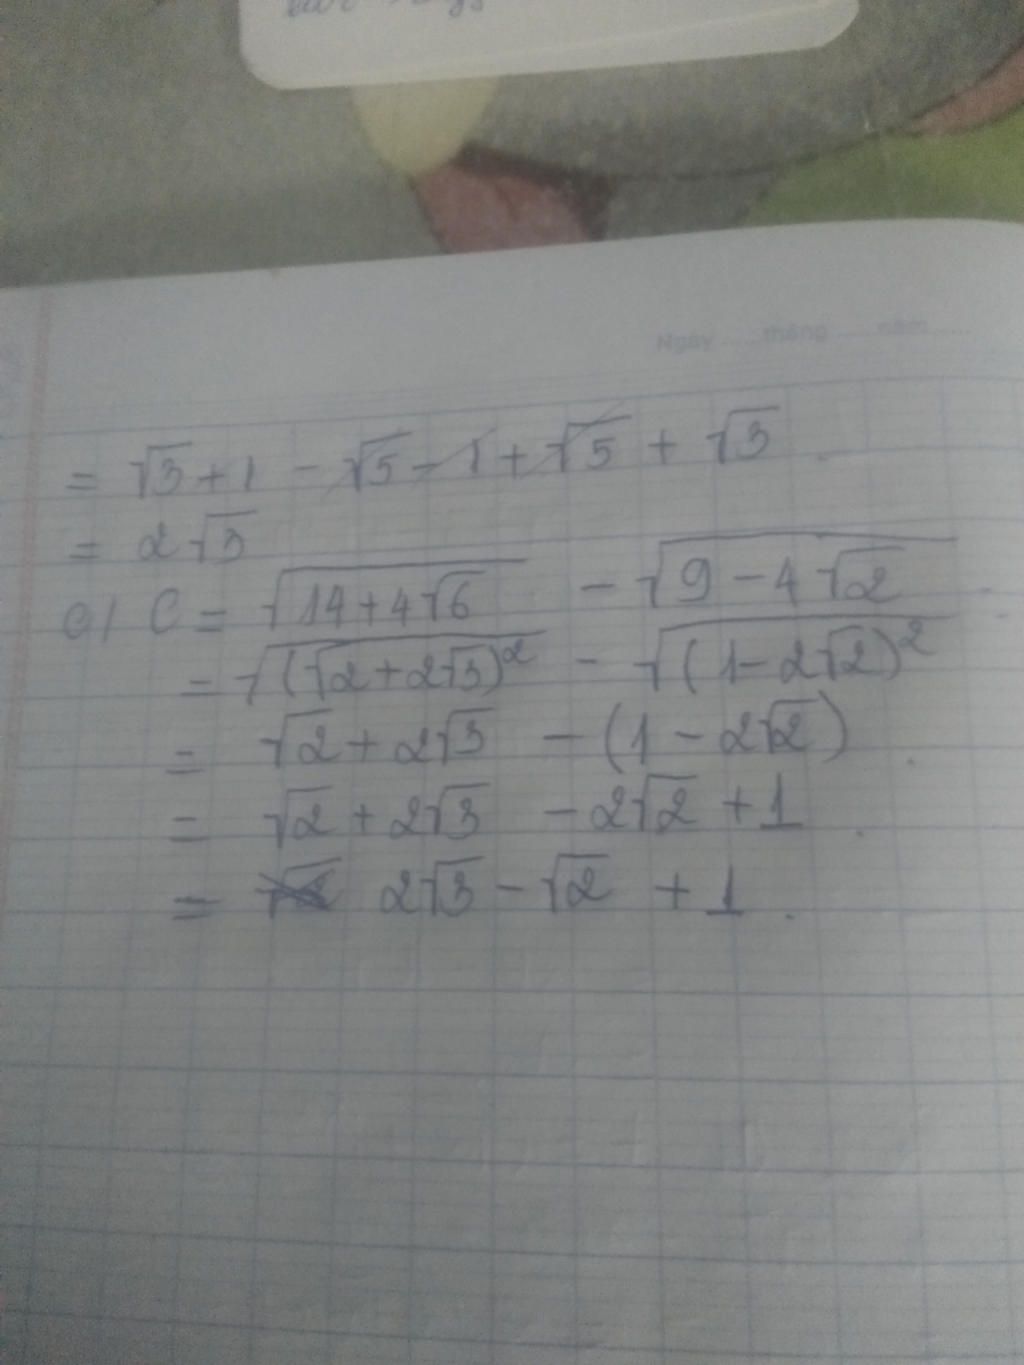 Ngày ..... tháng ..... năm .....
= √3 + 1 - √5 - 1 + √5 + √3
= 2√3
c/ C = √(14 + 4√6) - √(9 - 4√2)
= √((√2 + 2√3)²) - √((1 - 2√2)²)
= √2 + 2√3 - (1 - 2√2)
= √2 + 2√3 - 2√2 + 1
= 2√3 - √2 + 1.